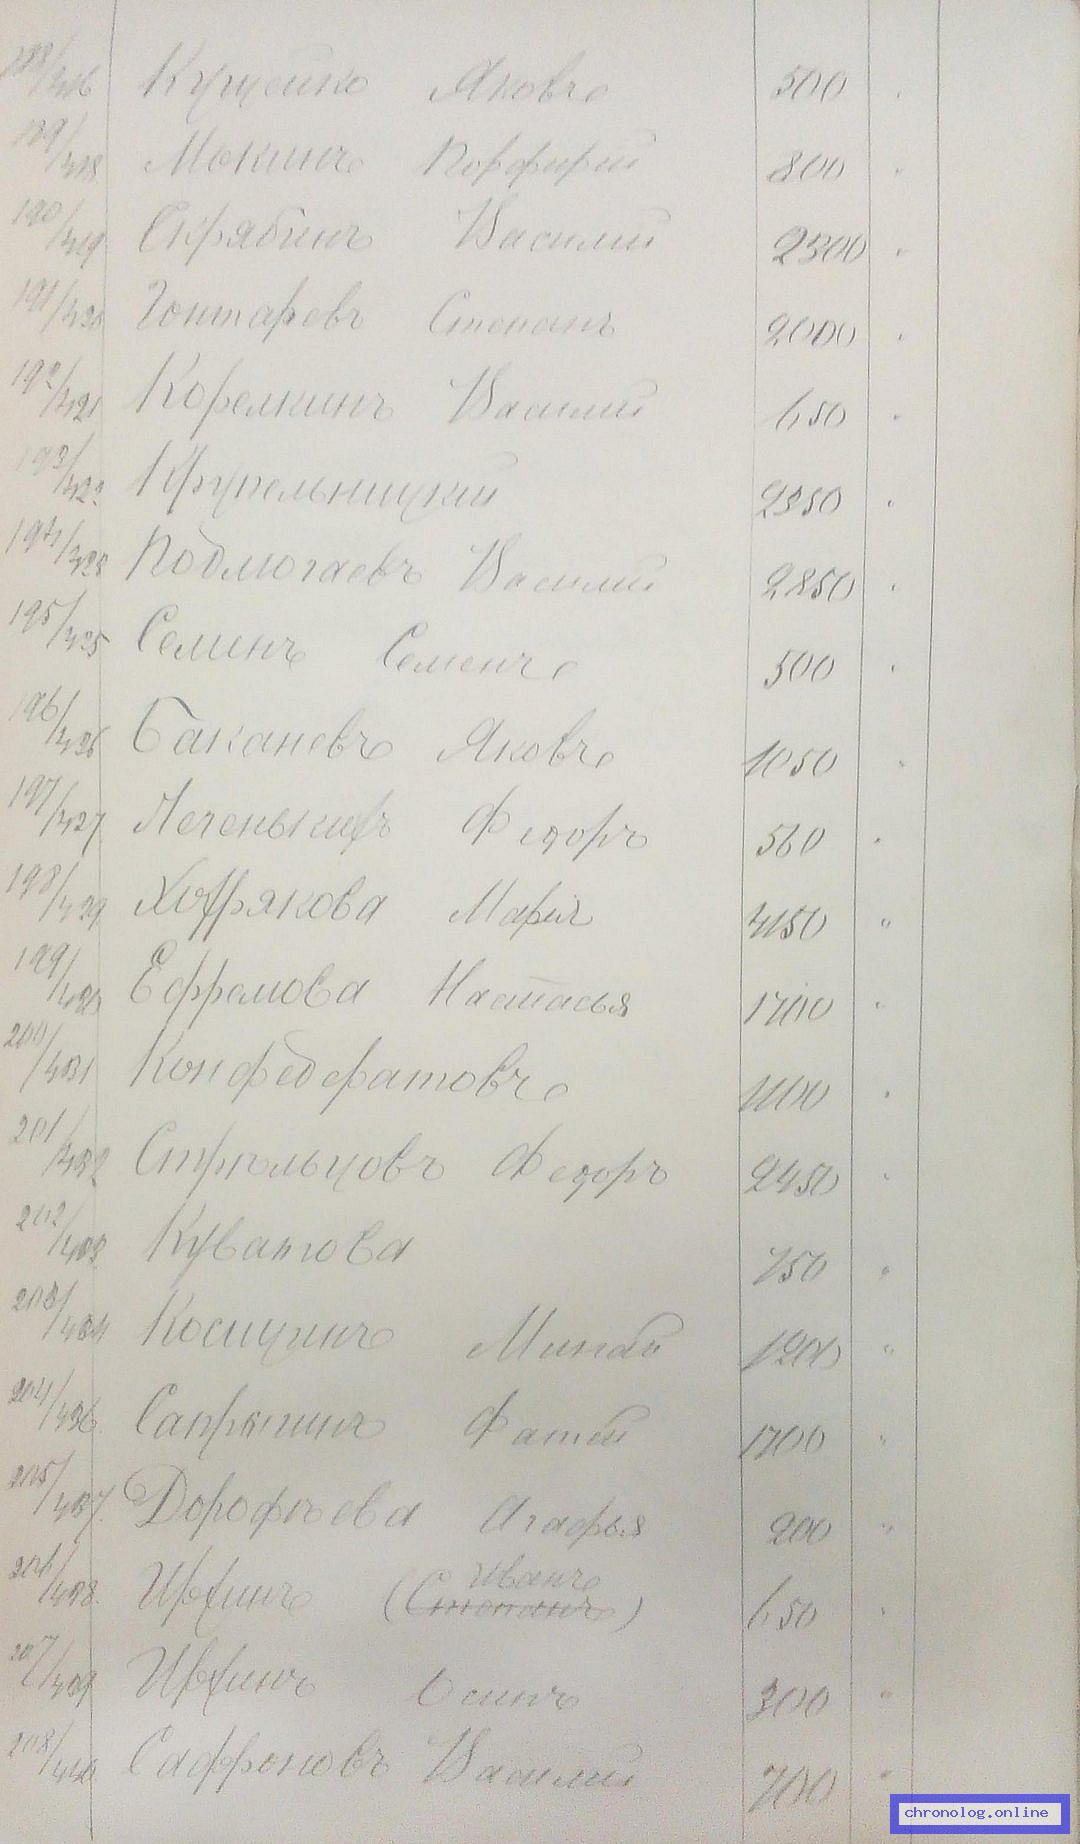 188/416 Кущейко Яковъ 500 "
189/418 Мокинъ Порфирий 800 "
190/419 Скрябинъ Василий 2300 "
191/420 Гонтаревъ Степанъ 2000 "
192/421 Корелкинъ Василий 650 "
193/422 Крупельницкий 2350 "
194/423 Подмогаевъ Василий 2850 "
195/425 Семинъ Семенъ 500 "
196/426 Баканевъ Яковъ 1050 "
197/427 Печенькинъ Федоръ 560 "
198/429 Хофрякова Мария 4150 "
199/430 Ефремова Настасья 1700 "
200/431 Конфедератовъ 1100 "
201/432 Стрѣльцовъ Федоръ 2450 "
202/433 Куватова 750 "
203/434 Косицинъ Минай 1200 "
204/436 Сапрыгинъ Фатей 1700 "
205/437 Дорофѣева Агафья 200 "
Иванъ
206/438 (Степанъ) 650 "
207/439 Осипъ 300 "
208/440 Сафроновъ Василий 700 "
chronolog.online